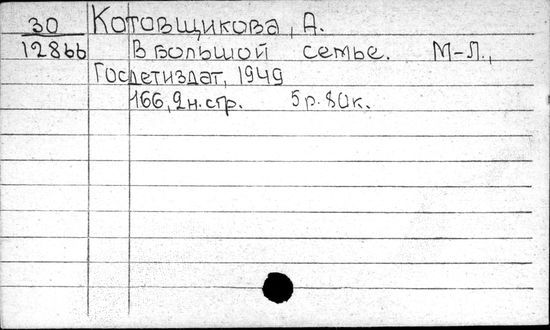 30 Котовщикова, А.
12866 В большой семье. М-Л.,
Госдетиздат, 1949
166,2н.стр. 5р.80к.